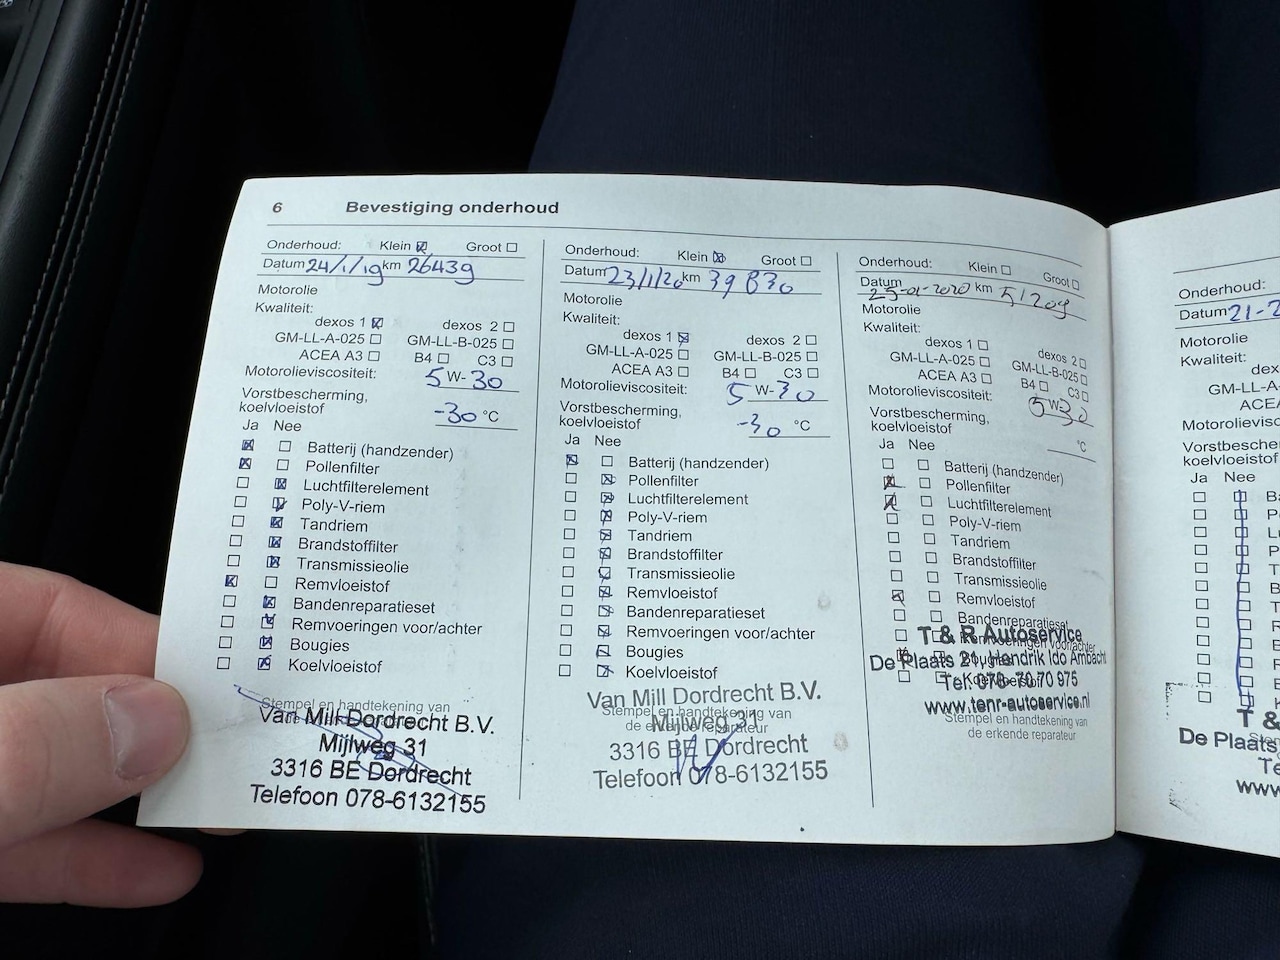 6 Bevestiging onderhoud
Onderhoud: Klein Groot
Datum 24/1/19 km 26439
Motorolie
Kwaliteit:
dexos 1 dexos 2
GM-LL-A-025 GM-LL-B-025
ACEA A3 B4 C3
Motorolieviscositeit: 5 W-30
Vorstbescherming,
koelvloeistof -30 °C
Ja Nee
Batterij (handzender)
Pollenfilter
Luchtfilterelement
Poly-V-riem
Tandriem
Brandstoffilter
Transmissieolie
Remvloeistof
Bandenreparatieset
Remvoeringen voor/achter
Bougies
Koelvloeistof
Stempel en handtekening van
Van Mill Dordrecht B.V.
Mijlweg 31
3316 BE Dordrecht
Telefoon 078-6132155
Onderhoud: Klein Groot
Datum 23/1/20 km 39830
Motorolie
Kwaliteit:
dexos 1 dexos 2
GM-LL-A-025 GM-LL-B-025
ACEA A3 B4 C3
Motorolieviscositeit: 5 W-30
Vorstbescherming,
koelvloeistof -30 °C
Ja Nee
Batterij (handzender)
Pollenfilter
Luchtfilterelement
Poly-V-riem
Tandriem
Brandstoffilter
Transmissieolie
Remvloeistof
Bandenreparatieset
Remvoeringen voor/achter
Bougies
Koelvloeistof
Van Mill Dordrecht B.V.
Stempel en handtekening van
Mijlweg 31
de erkende reparateur
3316 BE Dordrecht
Telefoon 078-6132155
Onderhoud: Klein Groot
Datum km 51209
Motorolie
Kwaliteit:
dexos 1 dexos 2
GM-LL-A-025 GM-LL-B-025
ACEA A3 B4 C3
Motorolieviscositeit: 5 W-30
Vorstbescherming,
koelvloeistof °C
Ja Nee
Batterij (handzender)
Pollenfilter
Luchtfilterelement
Poly-V-riem
Tandriem
Brandstoffilter
Transmissieolie
Remvloeistof
Bandenreparatieset
T & R Autoservice
Remvoeringen voor/achter
De Plaats 21, Hendrik Ido Ambacht
Bougies
Koelvloeistof
Tel. 078-70 70 975
www.tenr-autoservice.nl
Stempel en handtekening van
de erkende reparateur
Onderhoud:
Datum 21-2
Motorolie
Kwaliteit:
dex
GM-LL-A-
ACEA
Motorolieviscos
Vorstbescher
koelvloeistof
Ja Nee
Ba
Po
Lu
Po
T
B
T
R
B
R
B
K
T &
Stem
De Plaats
Te
www